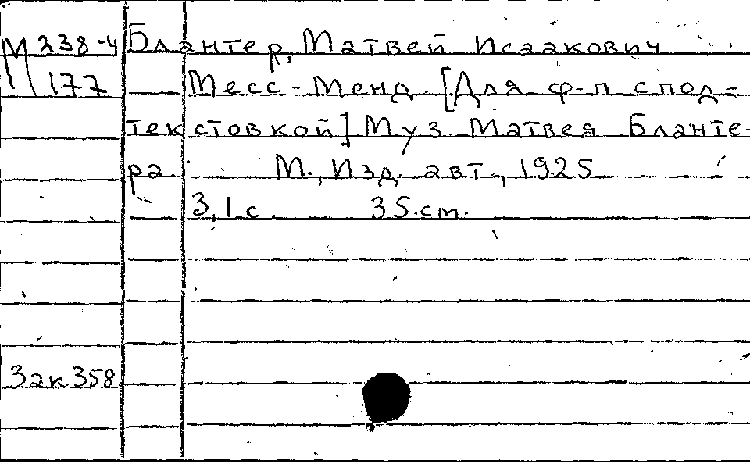 М 238-4
177
Блантер, Матвей Исаакович
Месс-Менд [Для ф-п с под=
текстовкой] Муз Матвея Бланте-
ра. М., Изд. авт., 1925
3,1 с 35 см.
Зак 358